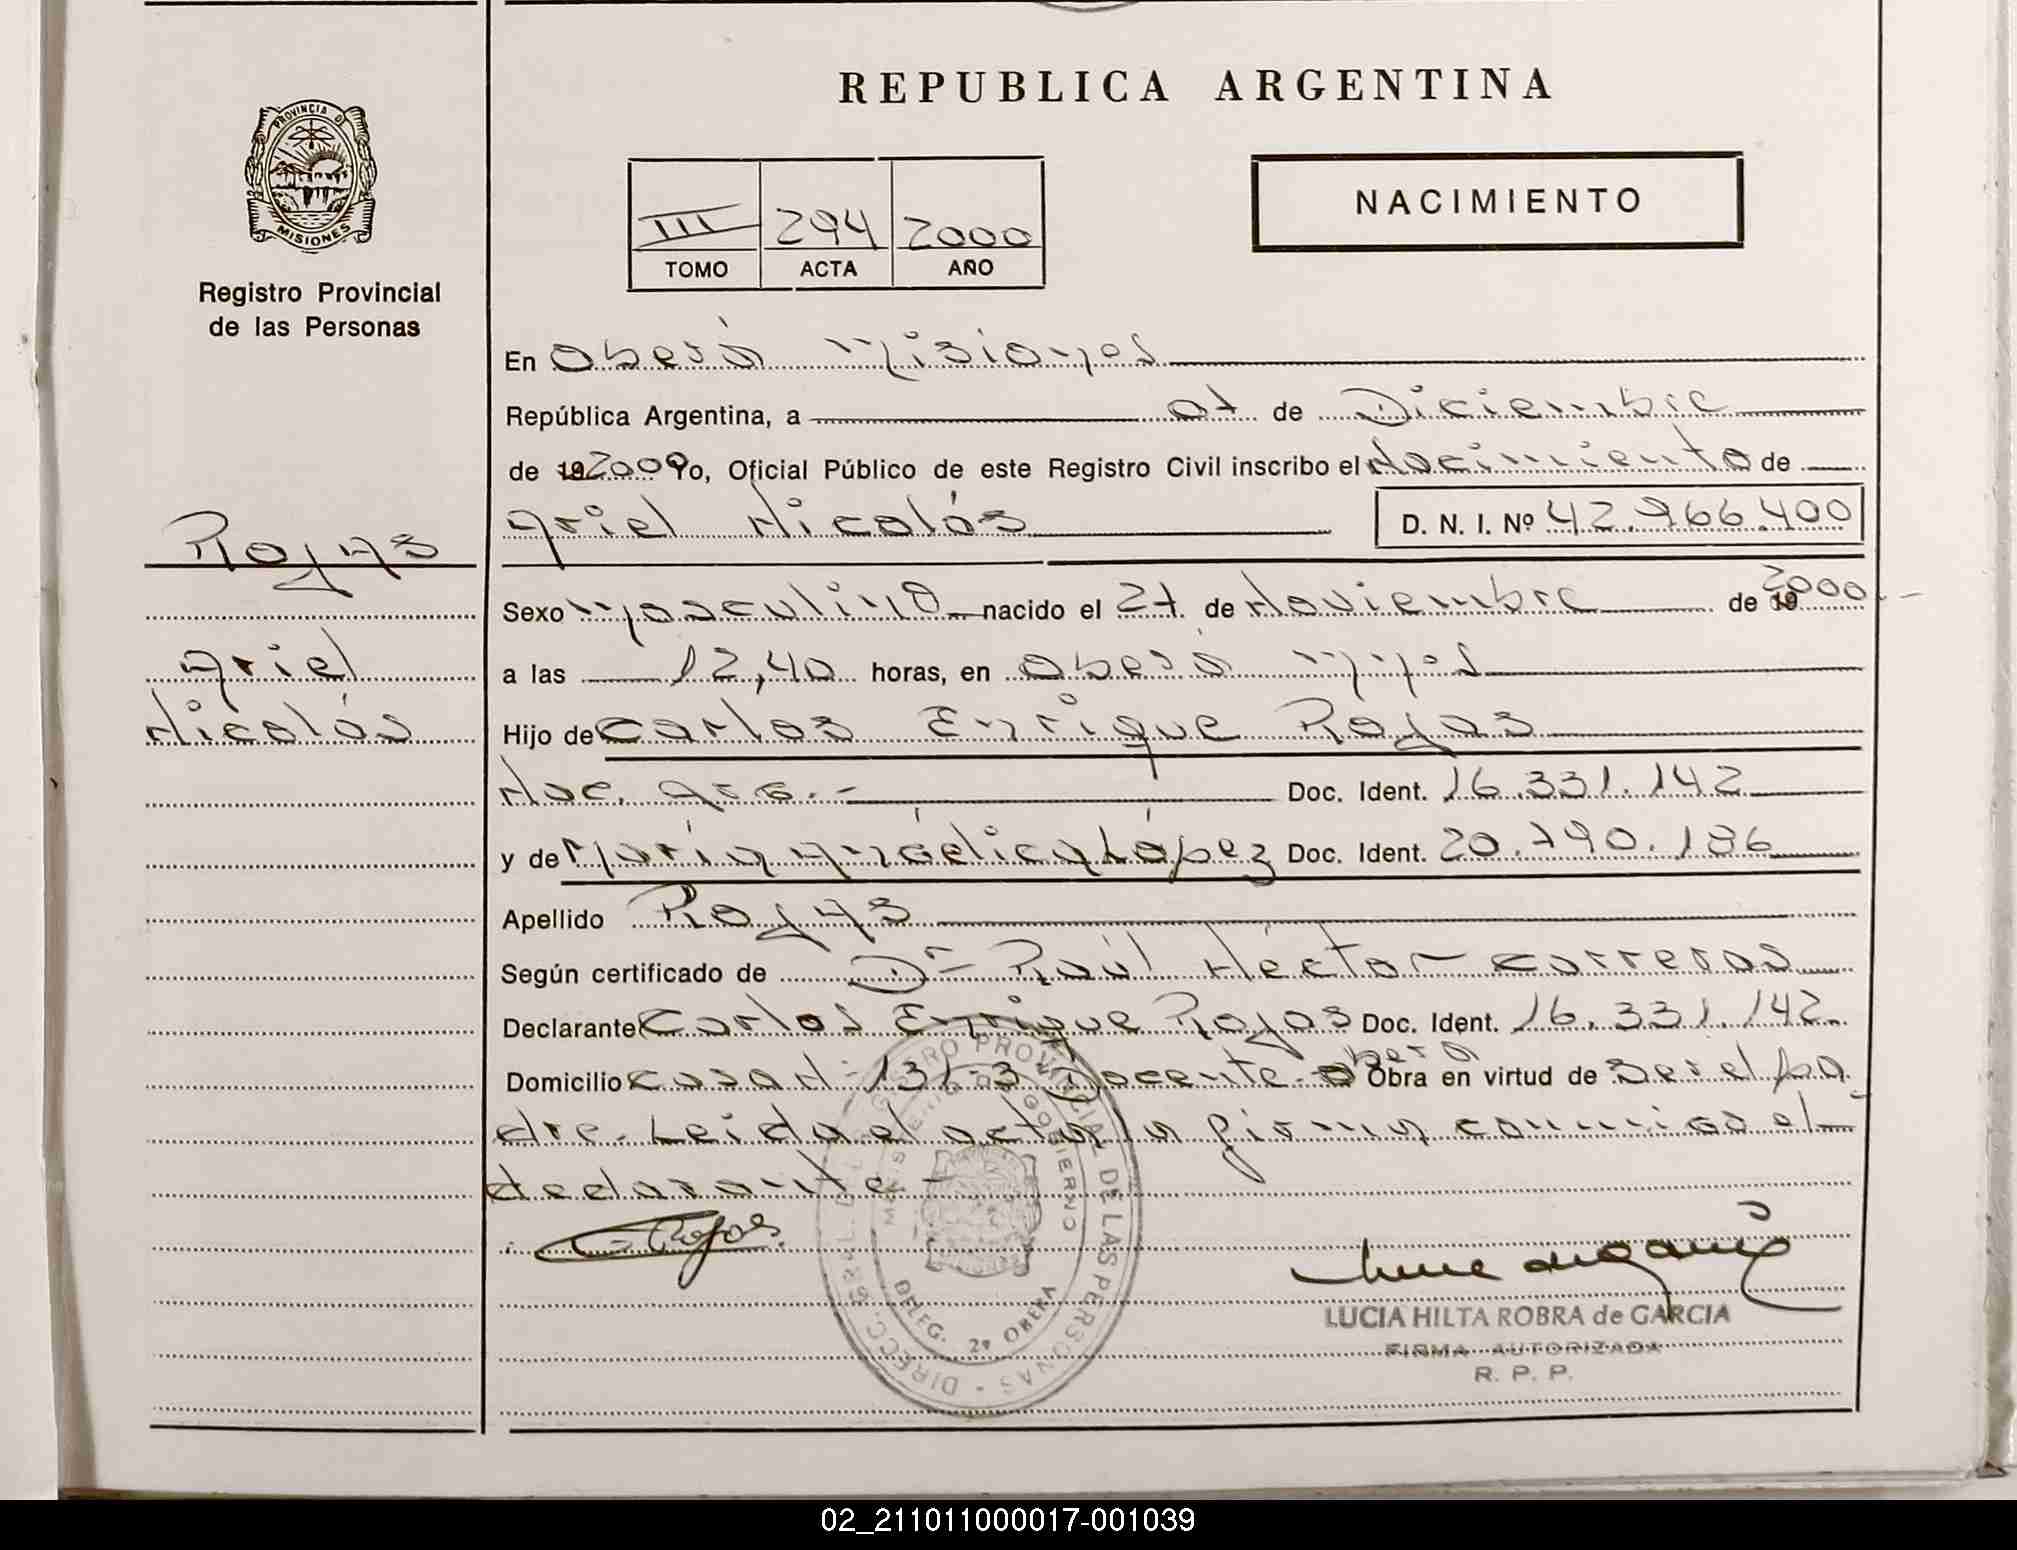 REPUBLICA ARGENTINA
PROVINCIA DE
MISIONES
Registro Provincial
de las Personas
III 294 2000
TOMO ACTA AÑO
NACIMIENTO
En Oberá Misiones
República Argentina, a 07 de Diciembre
de 19 2000 Yo, Oficial Público de este Registro Civil inscribo el Nacimiento de
Ariel Nicolás D. N. I. Nº 42.966.400
Rojas
Ariel
Nicolás
Sexo Masculino nacido el 27 de Noviembre de 19 2000.-
a las 12,40 horas, en Oberá Mnes
Hijo de Carlos Enrique Rojas
Nac. Arg.- Doc. Ident. 16.331.142
y de María Angélica López Doc. Ident. 20.790.186
Apellido Rojas
Según certificado de Dr- Raúl Héctor Carreras
Declarante Carlos Enrique Rojas Doc. Ident. 16.331.142
Domicilio Casa N- 131-3 Docente- Oberá Obra en virtud de Ser el pa
dre. Leida el acta la firma conmigo el
declarante-
C. Rojas.
DIRECC. GRAL. DEL REGISTRO PROVINCIAL DE LAS PERSONAS -
MINISTERIO DE GOBIERNO
DELEG. 2ª OBERA
LUCIA HILTA ROBRA de GARCIA
FIRMA AUTORIZADA
R. P. P.
02_211011000017-001039